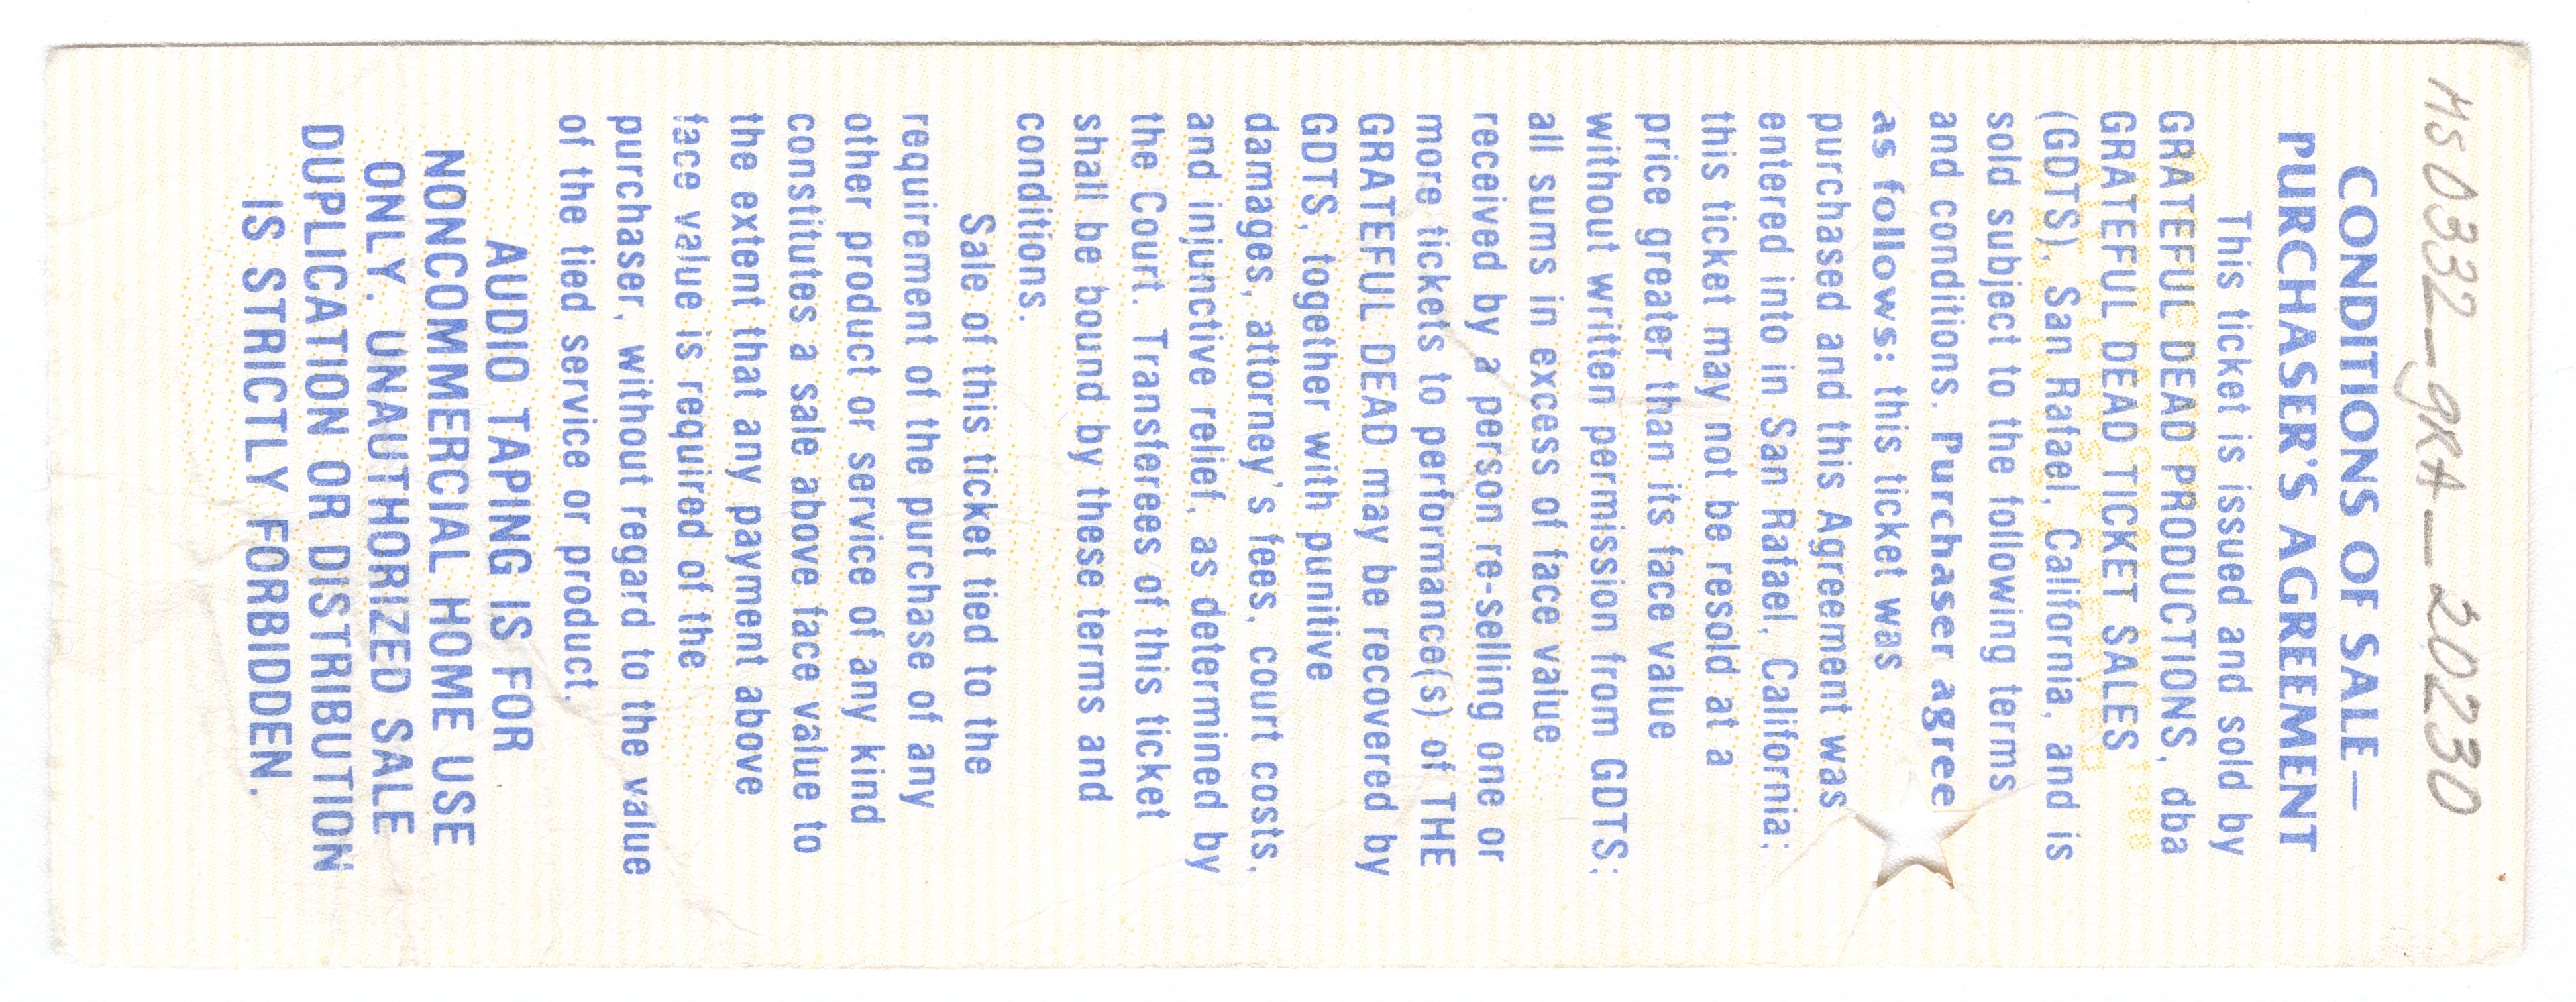 MS0332_gKA_20230
CONDITIONS OF SALE—
PURCHASER'S AGREEMENT
This ticket is issued and sold by
GRATEFUL DEAD PRODUCTIONS, dba
GRATEFUL DEAD TICKET SALES
(GDTS), San Rafael, California, and is
sold subject to the following terms
and conditions. Purchaser agree
as follows: this ticket was
purchased and this Agreement was
entered into in San Rafael, California;
this ticket may not be resold at a
price greater than its face value
without written permission from GDTS;
all sums in excess of face value
received by a person re-selling one or
more tickets to performance(s) of THE
GRATEFUL DEAD may be recovered by
GDTS, together with punitive
damages, attorney's fees, court costs,
and injunctive relief, as determined by
the Court. Transferees of this ticket
shall be bound by these terms and
conditions.
Sale of this ticket tied to the
requirement of the purchase of any
other product or service of any kind
constitutes a sale above face value to
the extent that any payment above
face value is required of the
purchaser, without regard to the value
of the tied service or product.
AUDIO TAPING IS FOR
NONCOMMERCIAL HOME USE
ONLY. UNAUTHORIZED SALE
DUPLICATION OR DISTRIBUTION
IS STRICTLY FORBIDDEN.